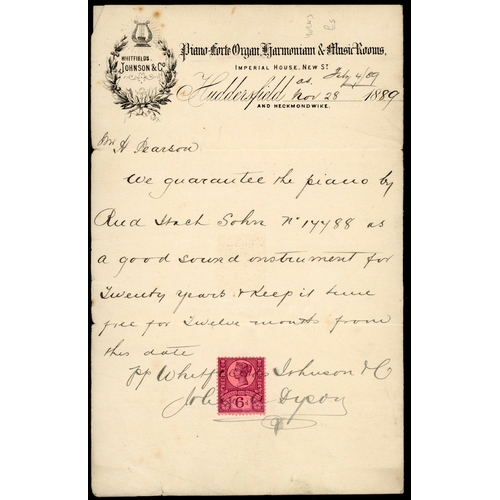 WHITFIELDS
JOHNSON & Co
Piano-Forte Organ, Harmonium & Music Rooms,
IMPERIAL HOUSE, NEW ST
as. Feb 4/89
Huddersfield Nov 28 1889
AND HECKMONDWIKE.
H Pearson
We guarantee the piano by
Rud Ibach Sohn No 17788 as
a good sound instrument for
Twenty years & keep it tune
free for Twelve months from
this date
pp Whitfields Johnson & C
Dyson
6D